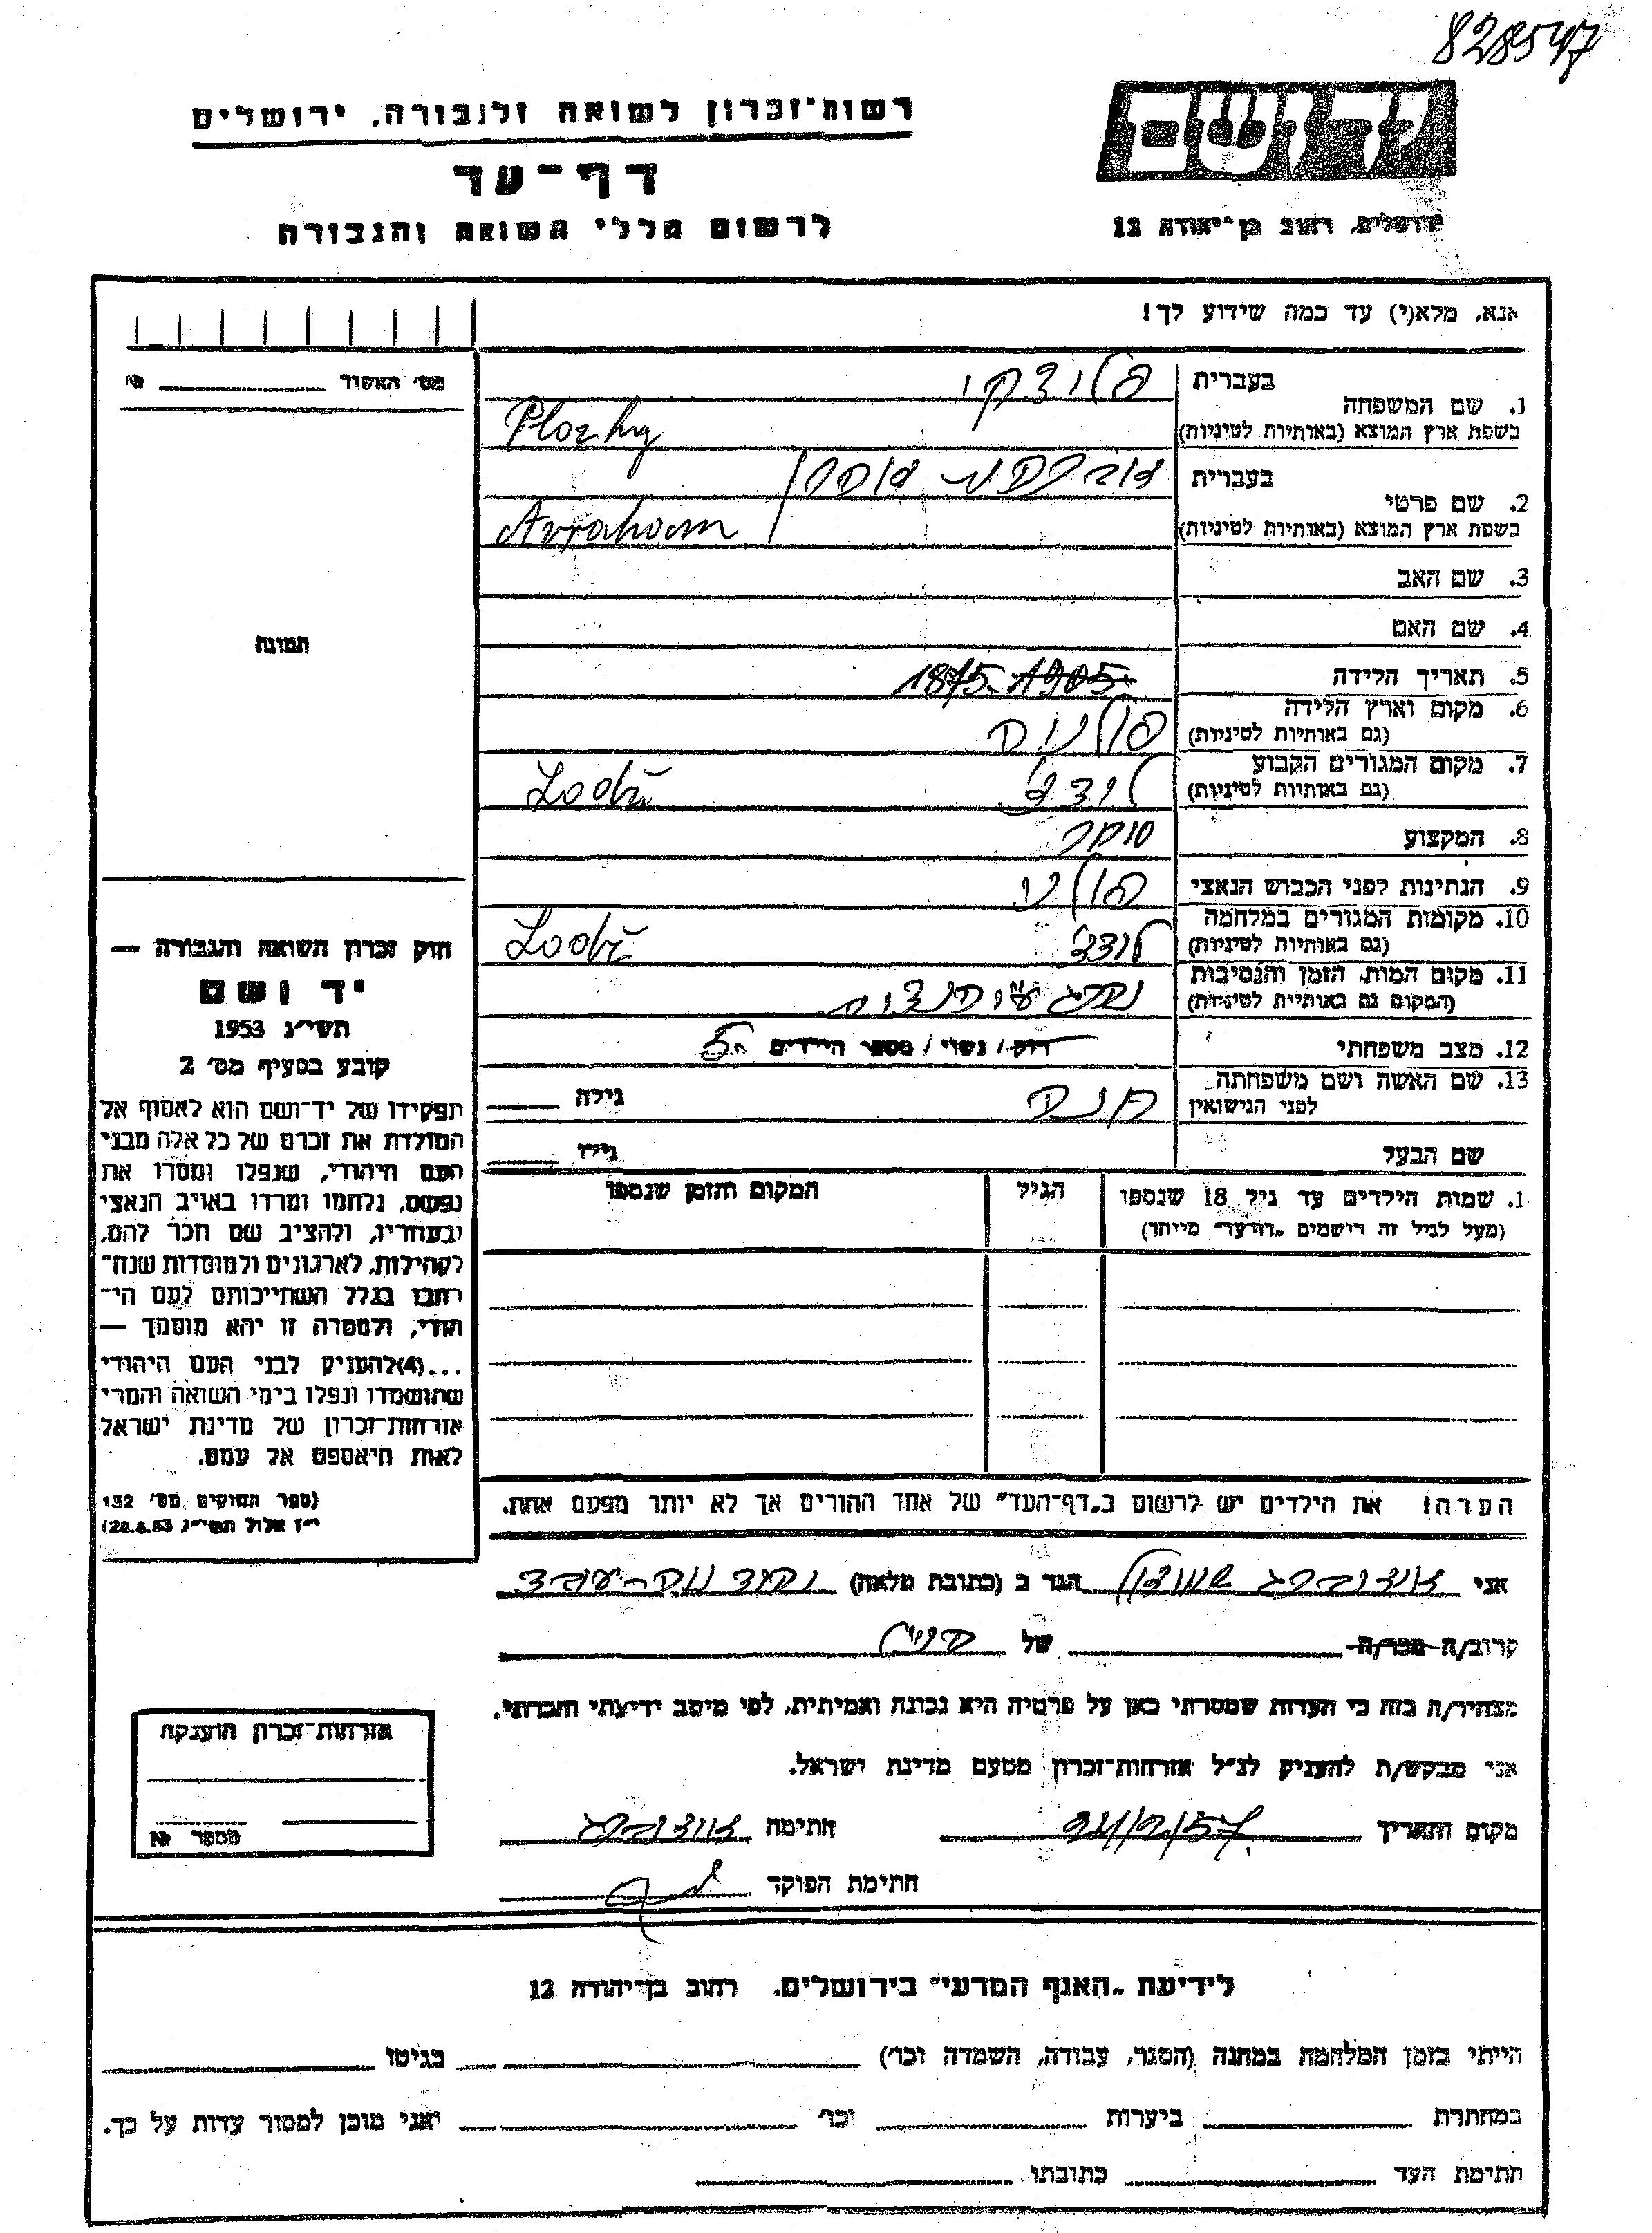 828547
רשות־זכרון לשואה ולגבורה, ירושלים
ידושם
דף־עד
לרשום חללי השואה והגבורה
ירושלים, רחוב בן־יהודה 12
אנא, מלא(י) עד כמה שידוע לך!
מס׳ האשור № 
בעברית פלוצקי
1. שם המשפחה
בשפת ארץ המוצא (באותיות לטיניות) Plozky
בעברית אברהם
2. שם פרטי
בשפת ארץ המוצא (באותיות לטיניות) Avraham
3. שם האב
4. שם האם
תמונה
5. תאריך הלידה 1905 1875
6. מקום וארץ הלידה
(גם באותיות לטיניות) פולניה
7. מקום המגורים הקבוע
(גם באותיות לטיניות) לודז׳ Lodž
8. המקצוע סוחר
9. הנתינות לפני הכבוש הנאצי פולני
10. מקומות המגורים במלחמה
(גם באותיות לטיניות) לודז׳ Lodž
11. מקום המות, הזמן והנסיבות
(המקום גם באותיות לטיניות) נהרג
12. מצב משפחתי רוק / נשוי / מספר הילדים 5
13. שם האשה ושם משפחתה
לפני הנישואין חנה גילה
שם הבעל גילו
1. שמות הילדים עד גיל 18 שנספו הגיל המקום והזמן שנספו
(מעל לגיל זה רישמים „דף־עד״ מייחד)
הערה! את הילדים יש לרשום ב„דף־העד״ של אחד ההורים אך לא יותר מפעם אחת.
חוק זכרון השואה והגבורה —
יד ושם
תשי״ג 1953
קובע בסעיף מס׳ 2
תפקידו של יד־ושם הוא לאסוף אל
המולדת את זכרם של כל אלה מבני
העם היהודי, שנפלו ומסרו את
נפשם, נלחמו ומרדו באויב הנאצי
ובעוזריו, ולהציב שם וזכר להם,
לקהילות, לארגונים ולמוסדות שנח־
רבו בגלל השתייכותם לעם הי־
הודי, ולמטרה זו יהא מוסמך —
...(4)להעניק לבני העם היהודי
שהושמדו ונפלו בימי השואה והמרי
אזרחות־זכרון של מדינת ישראל
לאות היאספם אל עמם.
(ספר החוקים מס׳ 132
י״ז אלול תשי״ג 28.8.53)
אני הגר ב (כתובת מלאה)
קרוב/ה מכר/ה של
מצהיר/ה בזה כי העדות שמסרתי כאן על פרטיה היא נכונה ואמיתית, לפי מיטב ידיעתי והכרתי.
אני מבקש/ת להעניק לנ״ל אזרחות־זכרון מטעם מדינת ישראל.
מקום ותאריך חתימה
חתימת הפוקד
אזרחות־זכרון הוענקה
מספר №
לידיעת „האגף המדעי״ בירושלים, רחוב בן־יהודה 12
הייתי בזמן המלחמה במחנה (הסגר, עבודה, השמדה וכו׳) בגיטו
במחתרת ביערות וכו׳ ואני מוכן למסור עדות על כך.
חתימת העד כתובתו